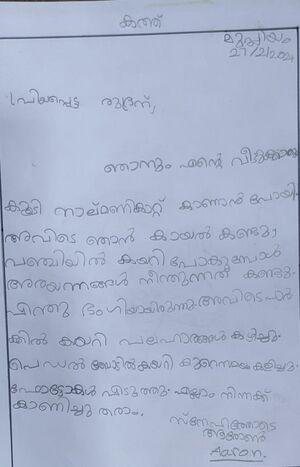 കത്ത്
27/2/2024
പ്രിയപ്പെട്ട രുദ്രന്,
ഞാനും എന്റെ വീട്ടുക്കാരു
കൂടി നാല്മണികാറ്റ് കാണാൻ പോയി.
അവിടെ ഞാൻ കായൽ കണ്ടു,
വഞ്ചിയിൽ കയറി പോകുമ്പോൾ
അരയന്നങ്ങൾ നീന്തുന്നത് കണ്ടു.
എന്തു ഭംഗിയായിരുന്നു. അവിടെ പാർ
ക്കിൽ കയറി പലഹാരങ്ങൾ കഴിച്ചു.
പെഡൽ ബോട്ടിൽ കയറി കുറെസമയം കളിച്ചു.
ഫോട്ടോകൾ എടുത്തു. എല്ലാം നിനക്ക്
കാണിച്ചു തരാം.
സ്നേഹത്തോടെ
ആരോൺ
Aaron.